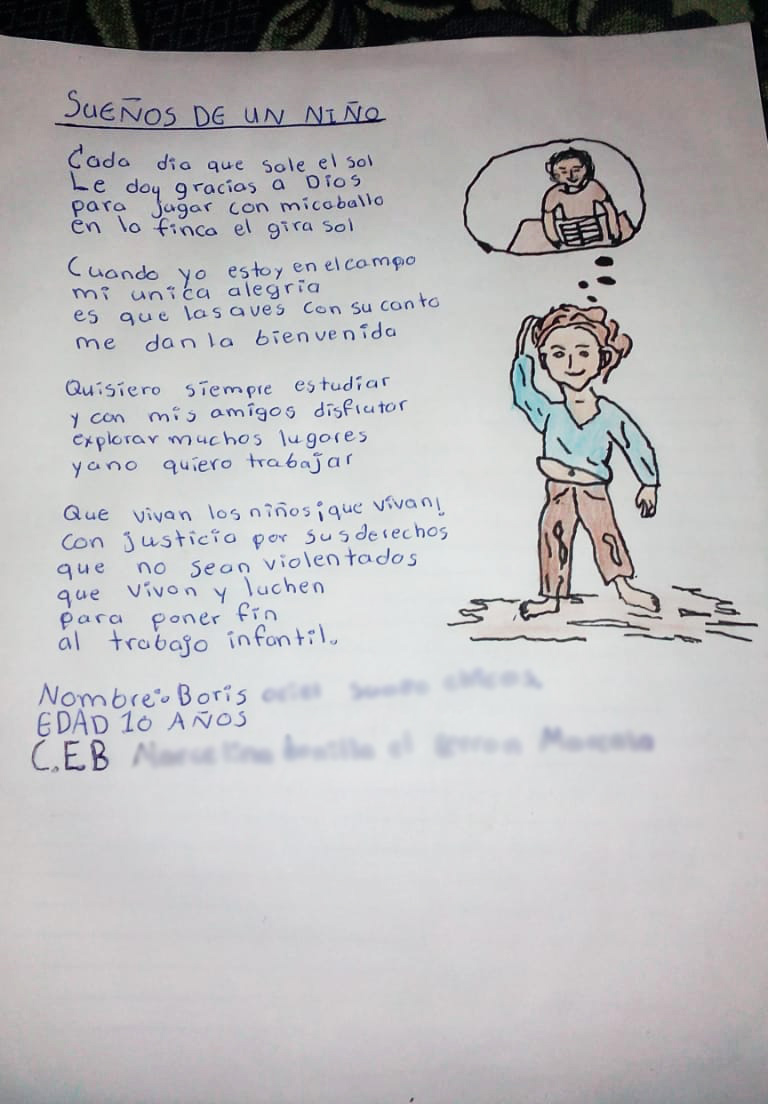 SUEÑOS DE UN NIÑO
Cada dia que sale el sol
Le doy gracias a Dios
para jugar con micaballo
en la finca el gira sol
Cuando yo estoy en el campo
mi unica alegria
es que las aves con su canto
me dan la bienvenida
Quisiera siempre estudiar
y con mis amigos disfrutar
explorar muchos lugares
yano quiero trabajar
Que vivan los niños ¡que vivan!
con justicia por sus derechos
que no sean violentados
que vivan y luchen
para poner fin
al trabajo infantil.
Nombre: Boris
EDAD 10 AÑOS
C.EB